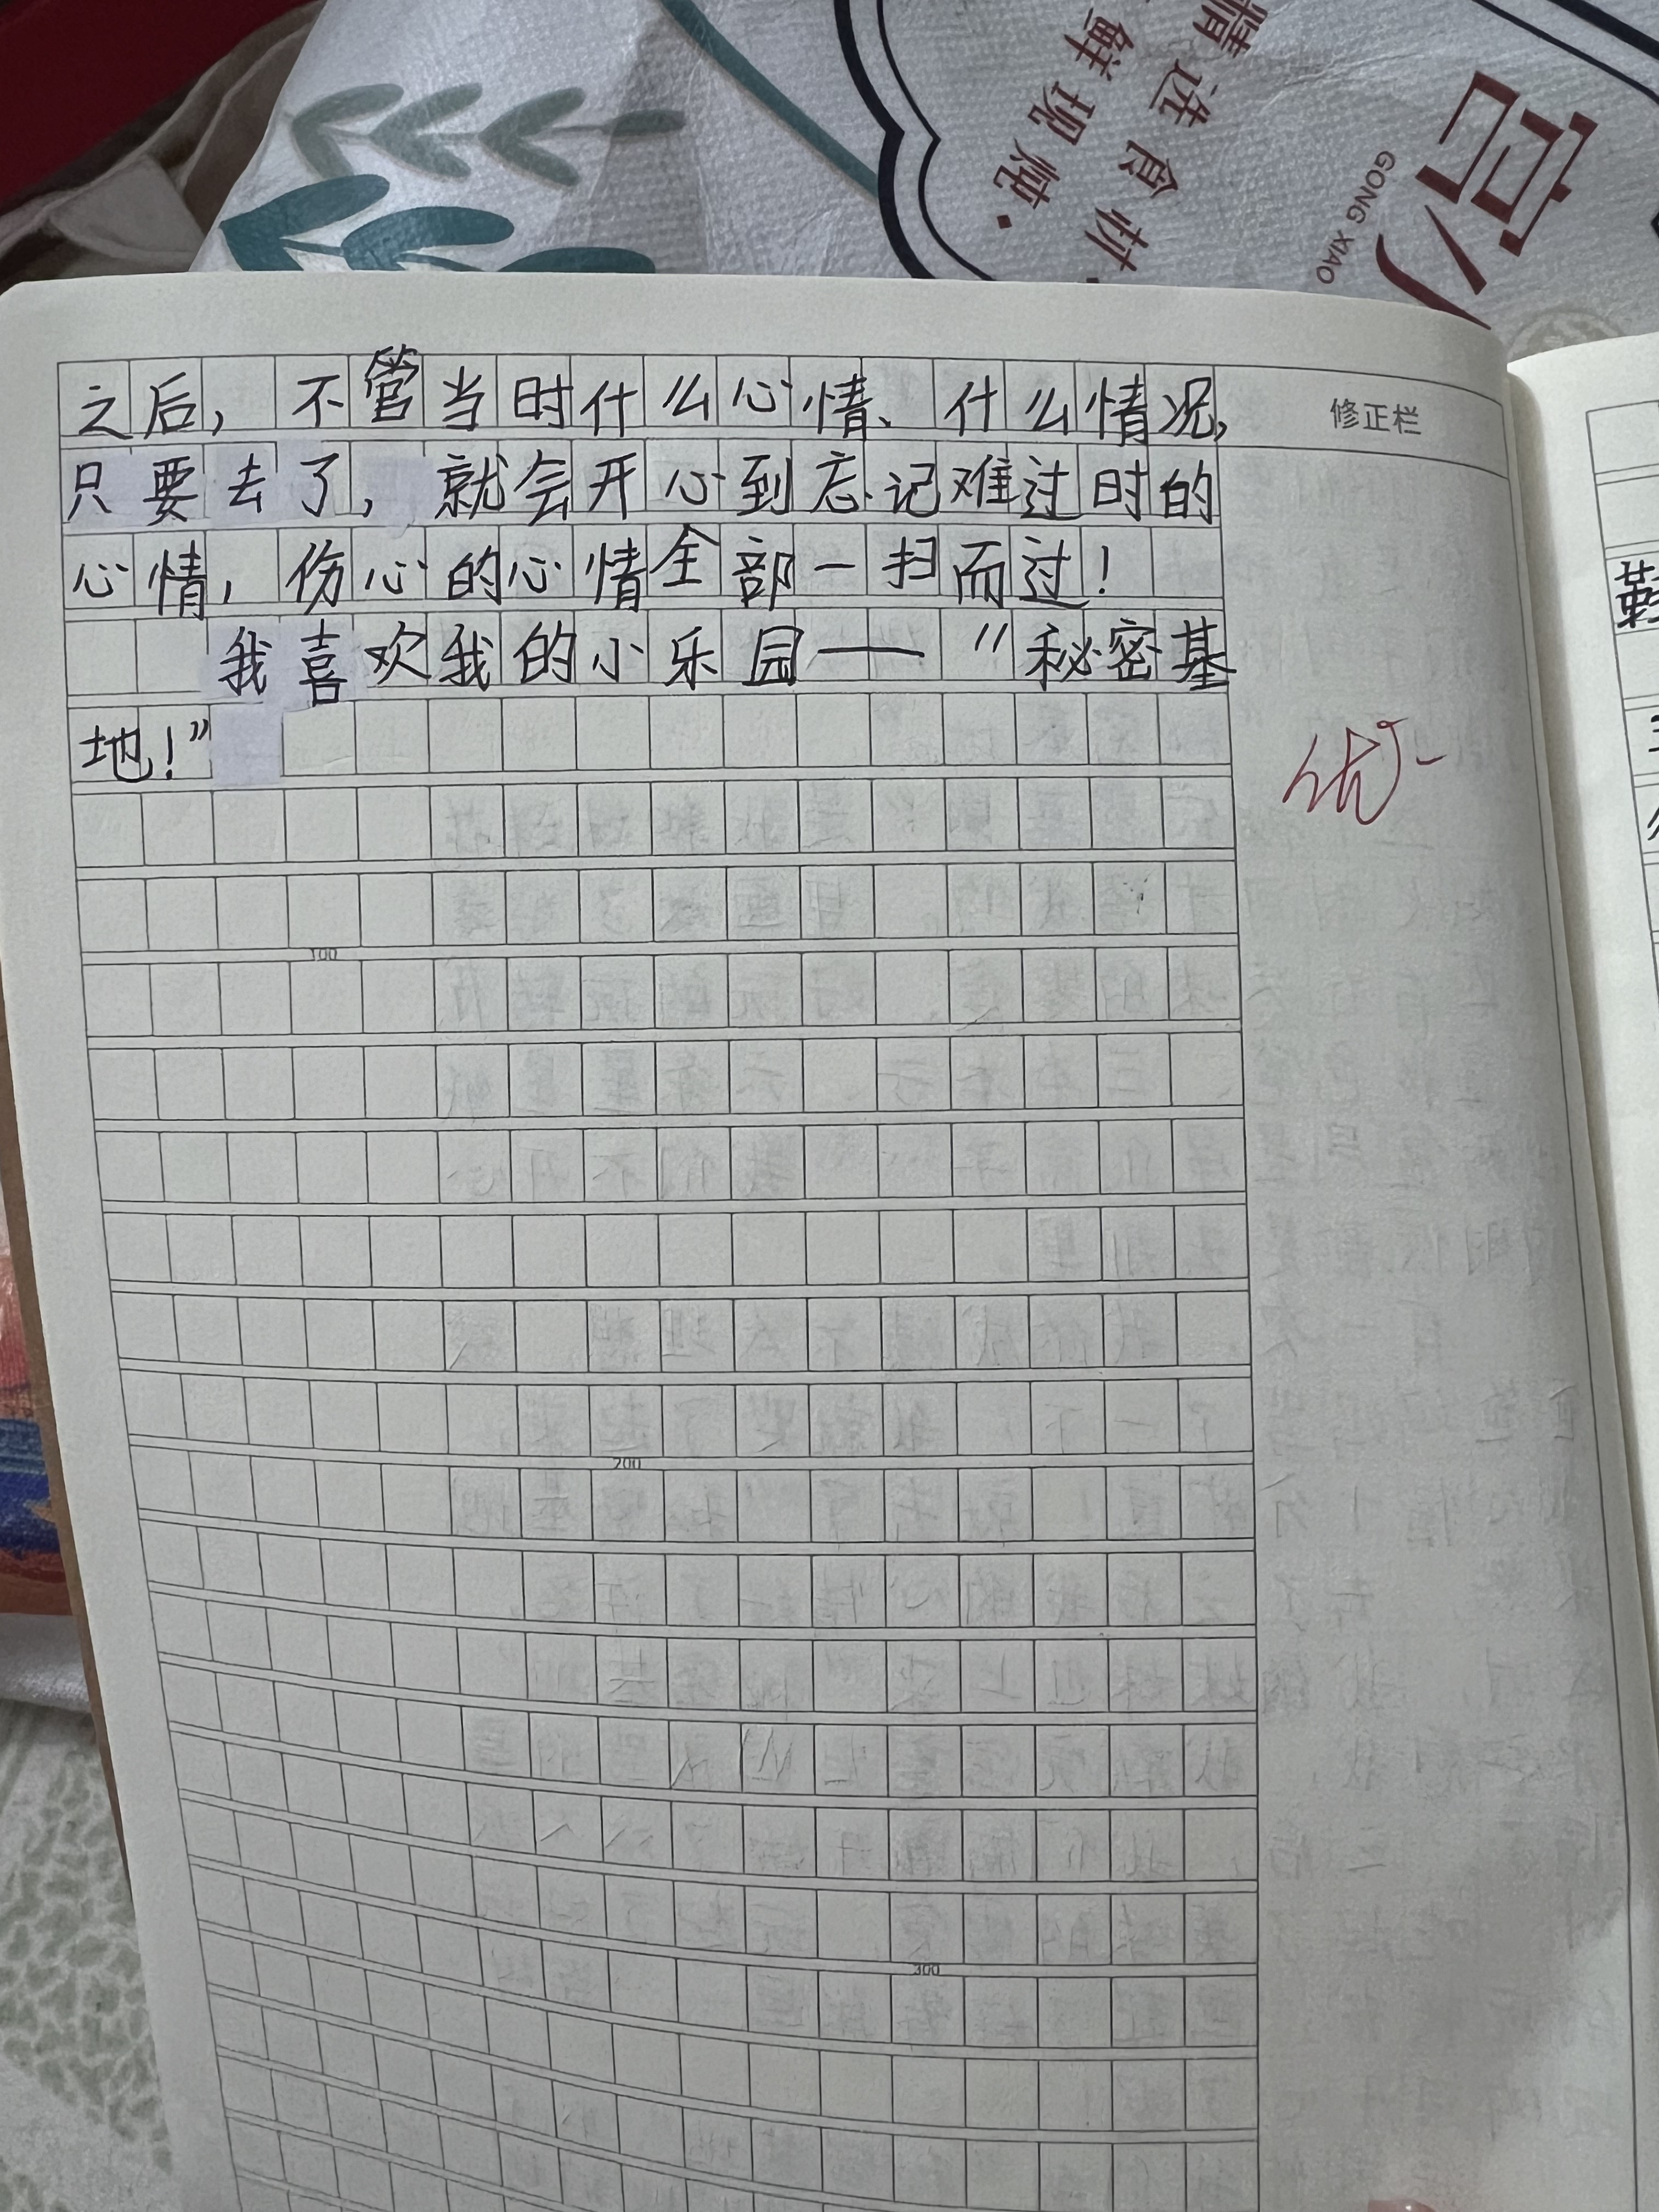 精选食材
鲜现炖
宫小
GONG XIAO
修正栏
之后，不管当时什么心情、什么情况，
只要去了，就会开心到忘记难过时的
心情，伤心的心情全部一扫而过！
我喜欢我的小乐园——“秘密基
地！”
优-
100
200
300